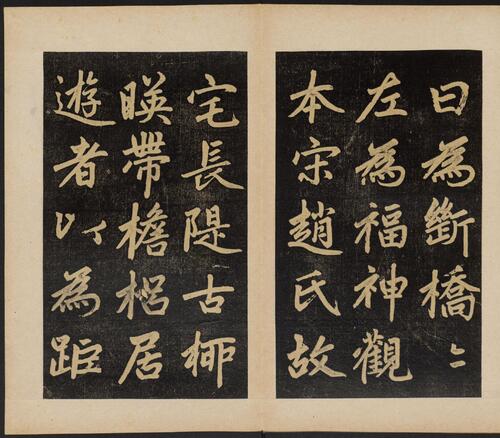 曰為斷橋〻
左為福神觀
本宋趙氏故
宅長隄古栁
暎帶檐梠居
遊者以為距